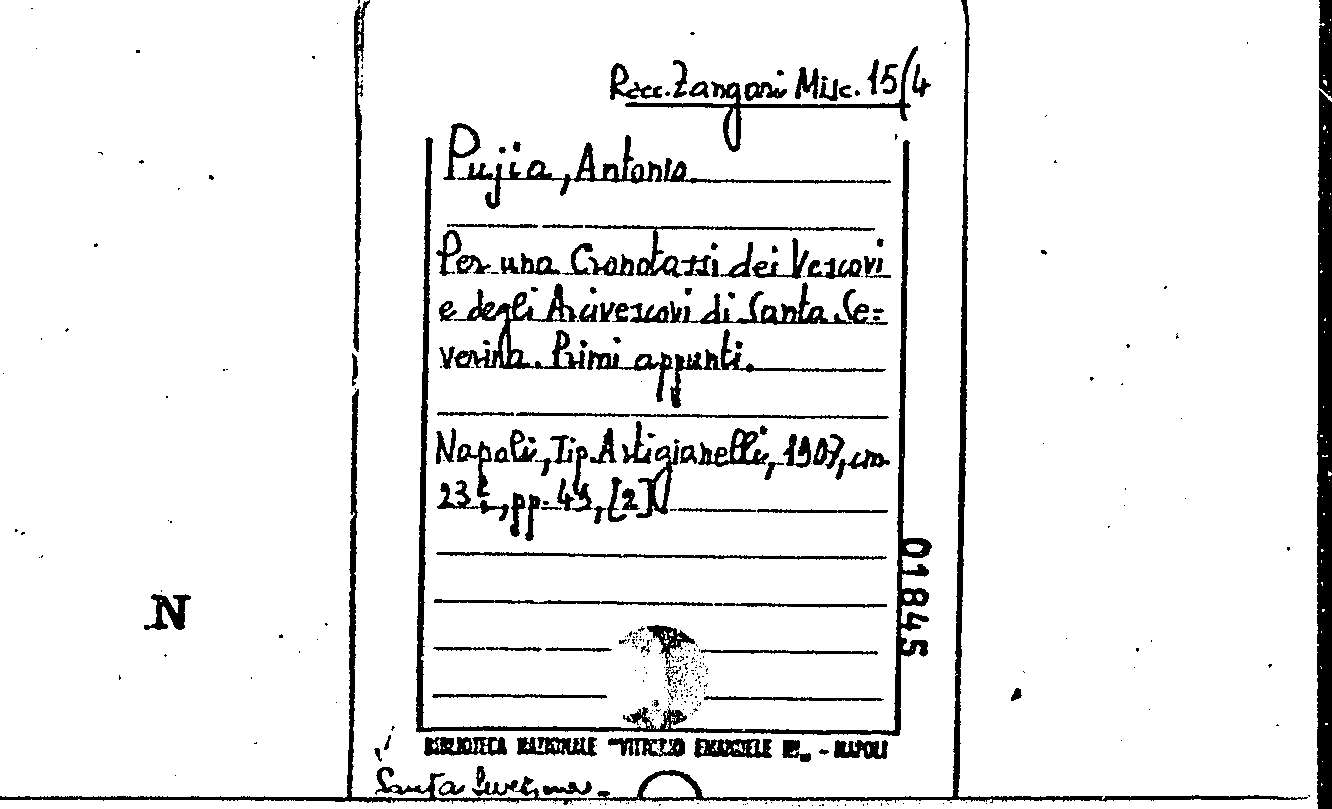 Racc. Zangari Misc. 15/4
Pujia, Antonio
Per una Cronotassi dei Vescovi
e degli Arcivescovi di Santa Se=
verina. Primi appunti.
Napoli, Tip. Artigianelli, 1907, cm.
23, pp. 49, [2]
01845
N
BIBLIOTECA NAZIONALE "VITTORIO EMANUELE III„ - NAPOLI
Santa Severina -